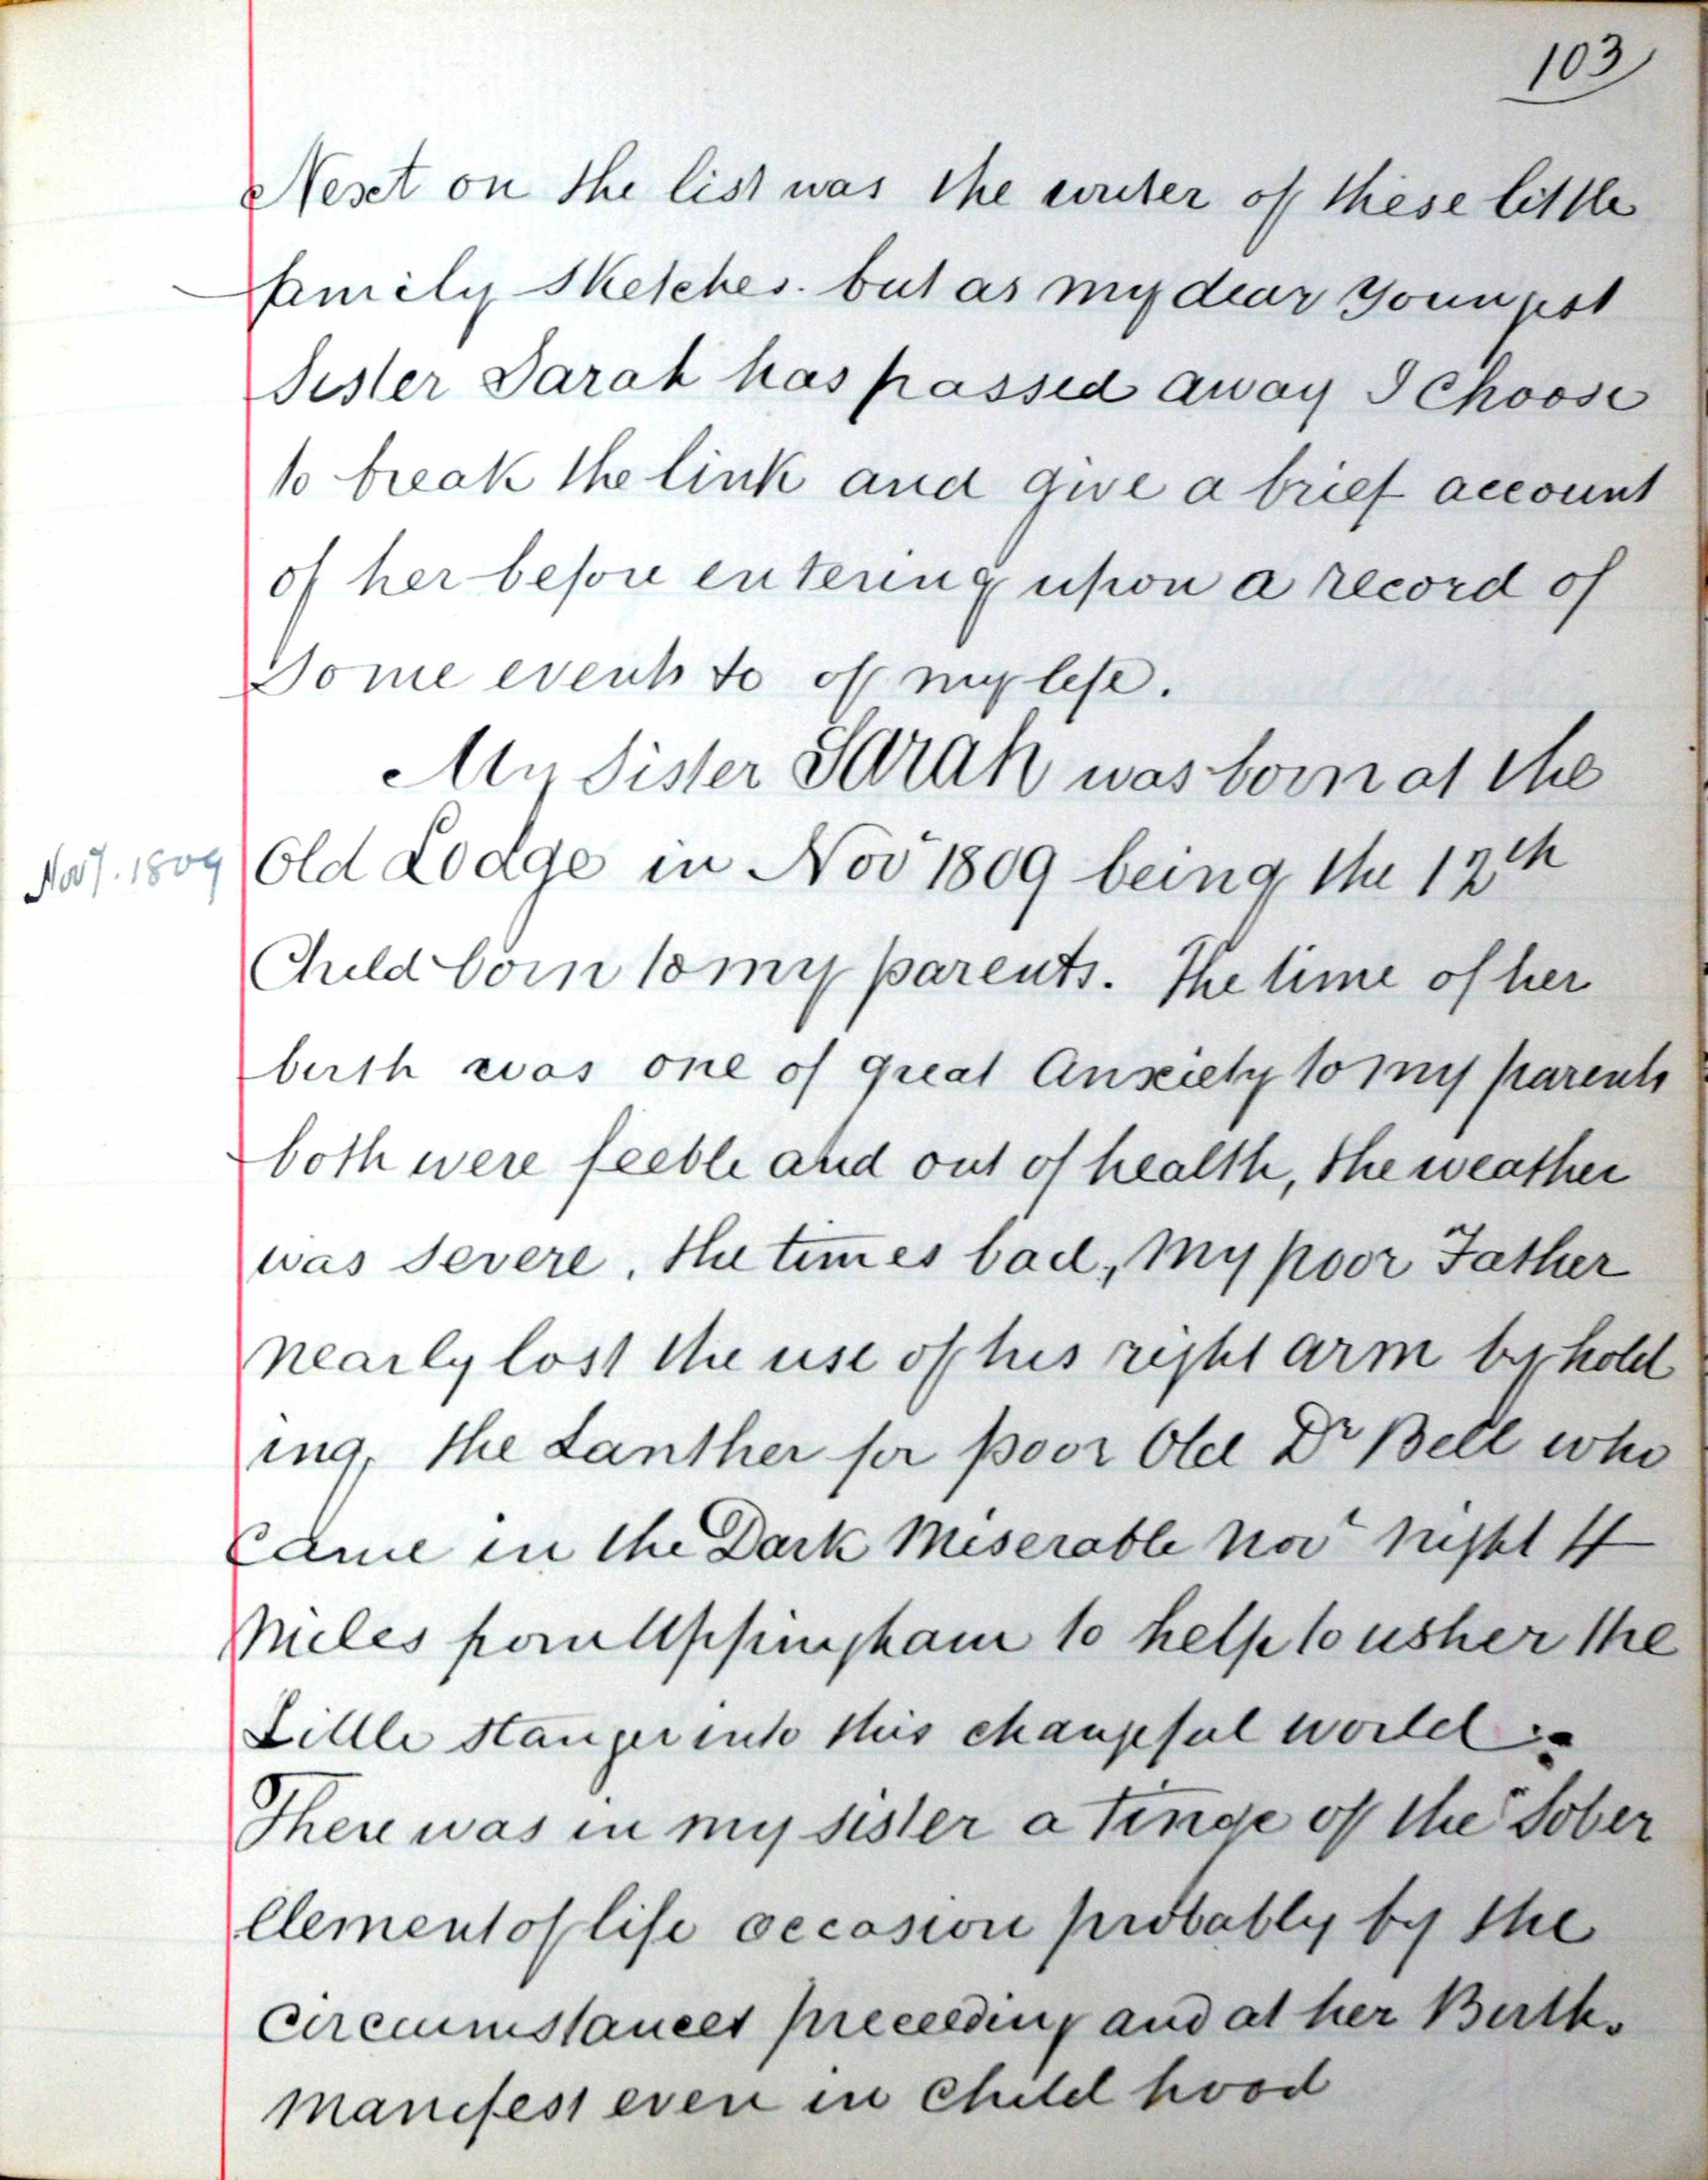 103
Next on the list was the writer of these little
family sketches. but as my dear youngest
Sister Sarah has passed away I Choose
to break the link and give a brief account
of her before entering upon a record of
some events to of my life.
My Sister Sarah was born at the
Nov. 1809
Old Lodge in Novr 1809 being the 12th
Child born to my parents. The time of her
birth was one of great Anxiety to my parents
both were feeble and out of health, the weather
was severe, the times bad, my poor Father
nearly lost the use of his right arm by hold
ing, the Lanther for poor Old Dr Bell who
Came in the Dark Miserable Novr night 4
Miles from Uppingham to help to usher the
Little stanger into this changeful world :-
There was in my sister a tinge of the "Sober
Element of life occasion probably by the
Circumstances preceeding and at her Birth.
manifest even in Child hood